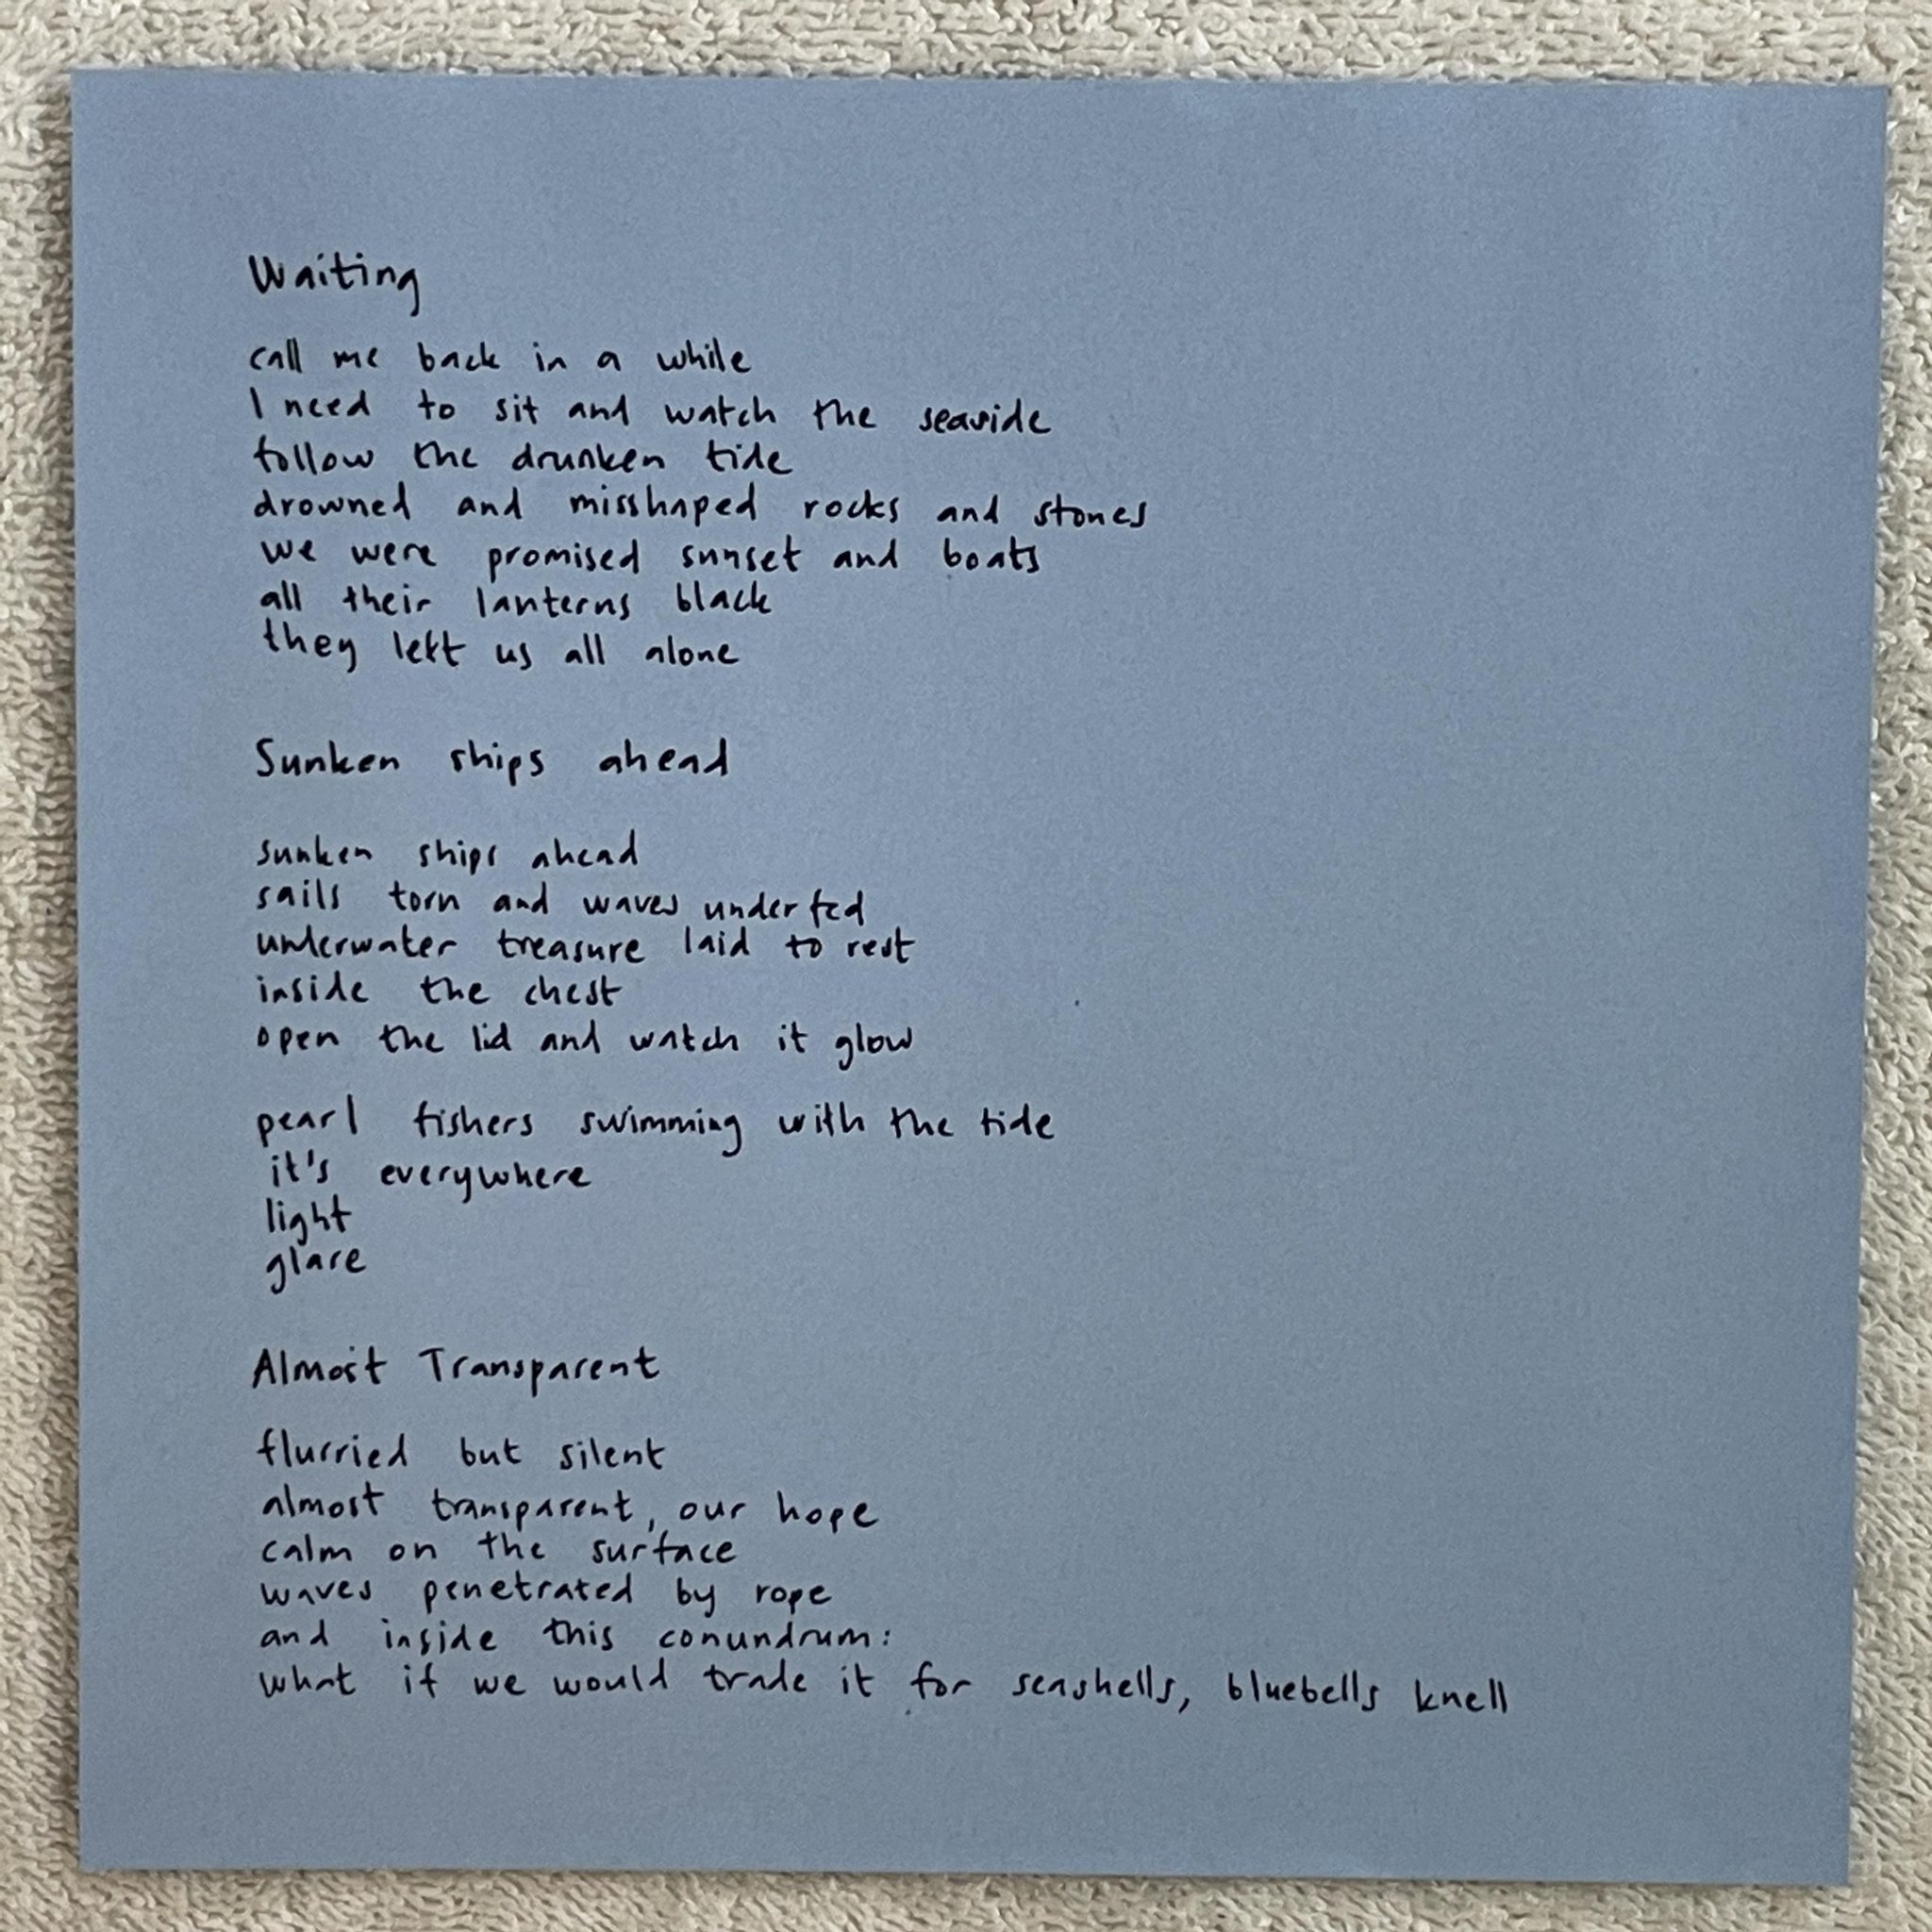 Waiting
call me back in a while
I need to sit and watch the seaside
follow the drunken tide
drowned and misshaped rocks and stones
we were promised sunset and boats
all their lanterns black
they left us all alone
Sunken ships ahead
sunken ships ahead
sails torn and waves underfed
underwater treasure laid to rest
inside the chest
open the lid and watch it glow
pearl fishers swimming with the tide
it's everywhere
light
glare
Almost Transparent
flurried but silent
almost transparent, our hope
calm on the surface
waves penetrated by rope
and inside this conundrum:
what if we would trade it for seashells, bluebells knell